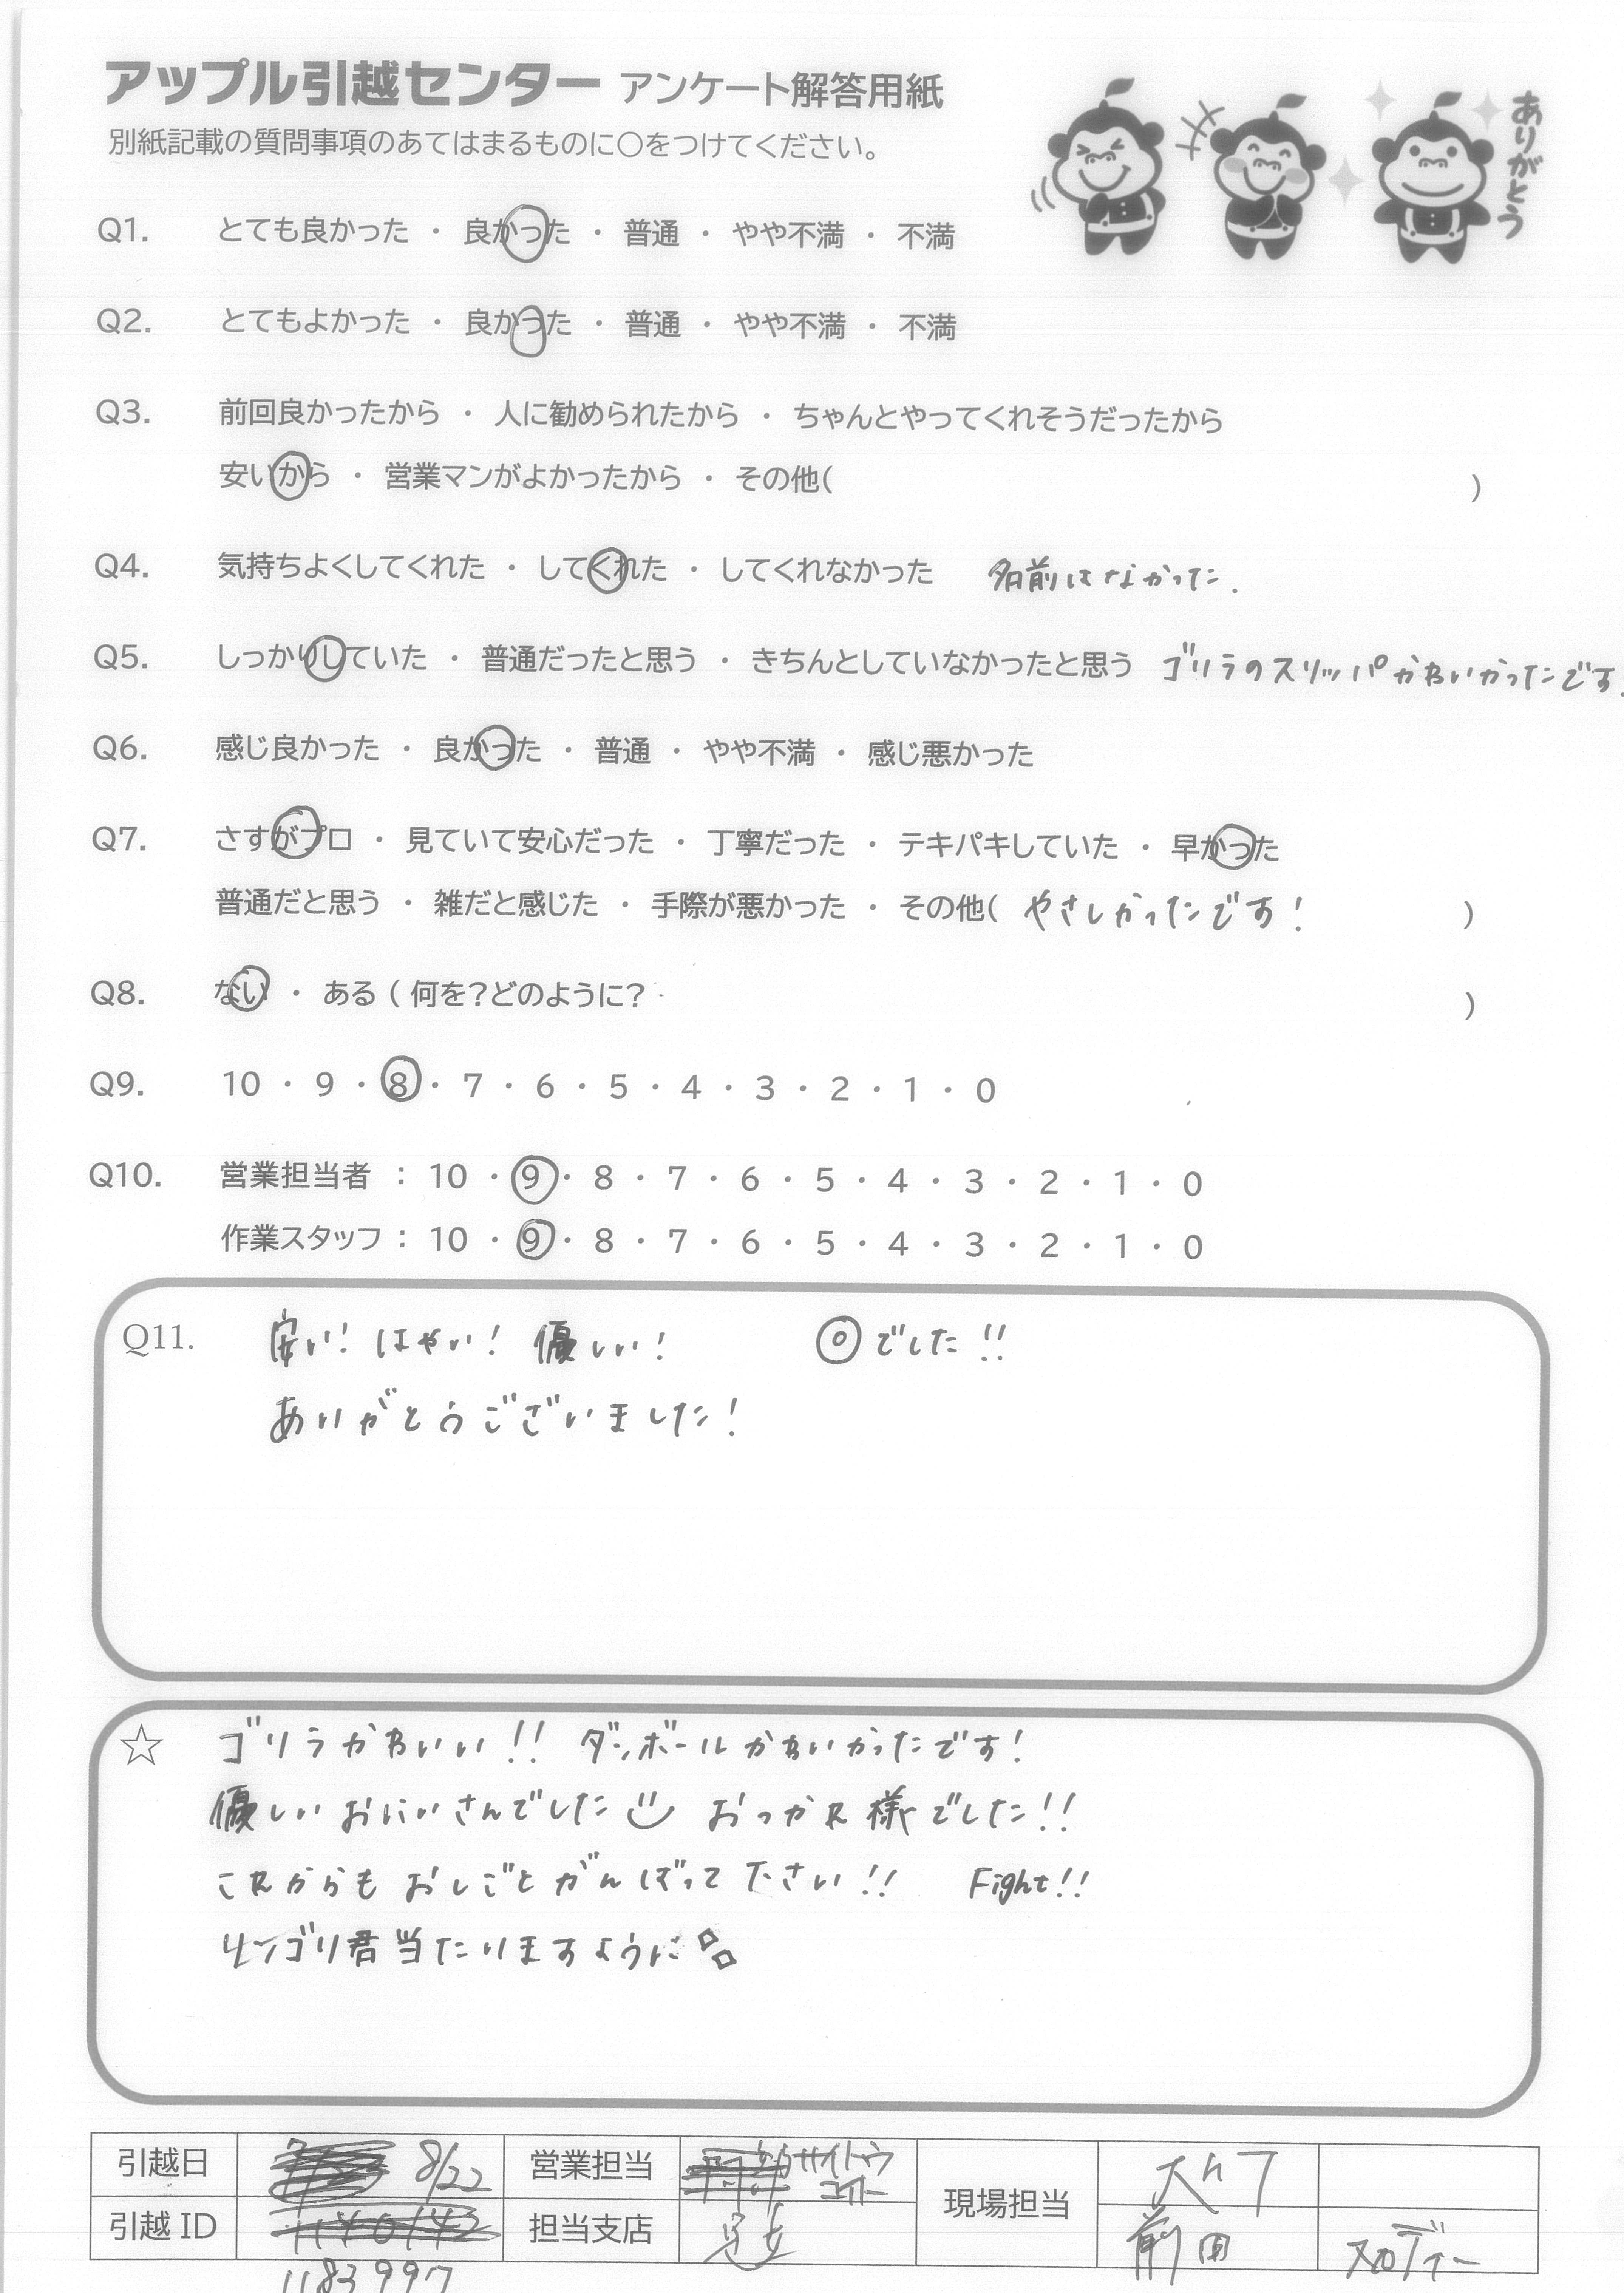 アップル引越センター アンケート解答用紙
別紙記載の質問事項のあてはまるものに〇をつけてください。
ありがとう
Q1. とても良かった ・ 良かった ・ 普通 ・ やや不満 ・ 不満
Q2. とてもよかった ・ 良かった ・ 普通 ・ やや不満 ・ 不満
Q3. 前回良かったから ・ 人に勧められたから ・ ちゃんとやってくれそうだったから
安いから ・ 営業マンがよかったから ・ その他( )
Q4. 気持ちよくしてくれた ・ してくれた ・ してくれなかった 名前はなかった.
Q5. しっかりしていた ・ 普通だったと思う ・ きちんとしていなかったと思う ゴリラのスリッパかわいかったです.
Q6. 感じ良かった ・ 良かった ・ 普通 ・ やや不満 ・ 感じ悪かった
Q7. さすがプロ ・ 見ていて安心だった ・ 丁寧だった ・ テキパキしていた ・ 早かった
普通だと思う ・ 雑だと感じた ・ 手際が悪かった ・ その他( やさしかったです! )
Q8. ない ・ ある ( 何を?どのように? )
Q9. 10 ・ 9 ・ 8 ・ 7 ・ 6 ・ 5 ・ 4 ・ 3 ・ 2 ・ 1 ・ 0
Q10. 営業担当者 : 10 ・ 9 ・ 8 ・ 7 ・ 6 ・ 5 ・ 4 ・ 3 ・ 2 ・ 1 ・ 0
作業スタッフ : 10 ・ 9 ・ 8 ・ 7 ・ 6 ・ 5 ・ 4 ・ 3 ・ 2 ・ 1 ・ 0
Q11. 安い! はやい! 優しい! ◎でした!!
ありがとうございました!
☆ ゴリラかわいい!! ダンボールかわいかったです!
優しいおにいさんでした おつかれ様でした!!
これからもおしごとがんばって下さい!! Fight!!
リンゴリ君当たりますように
引越日 8/22 営業担当 サイトウ 現場担当
引越 ID 1140142 担当支店 足立 前田
1183997